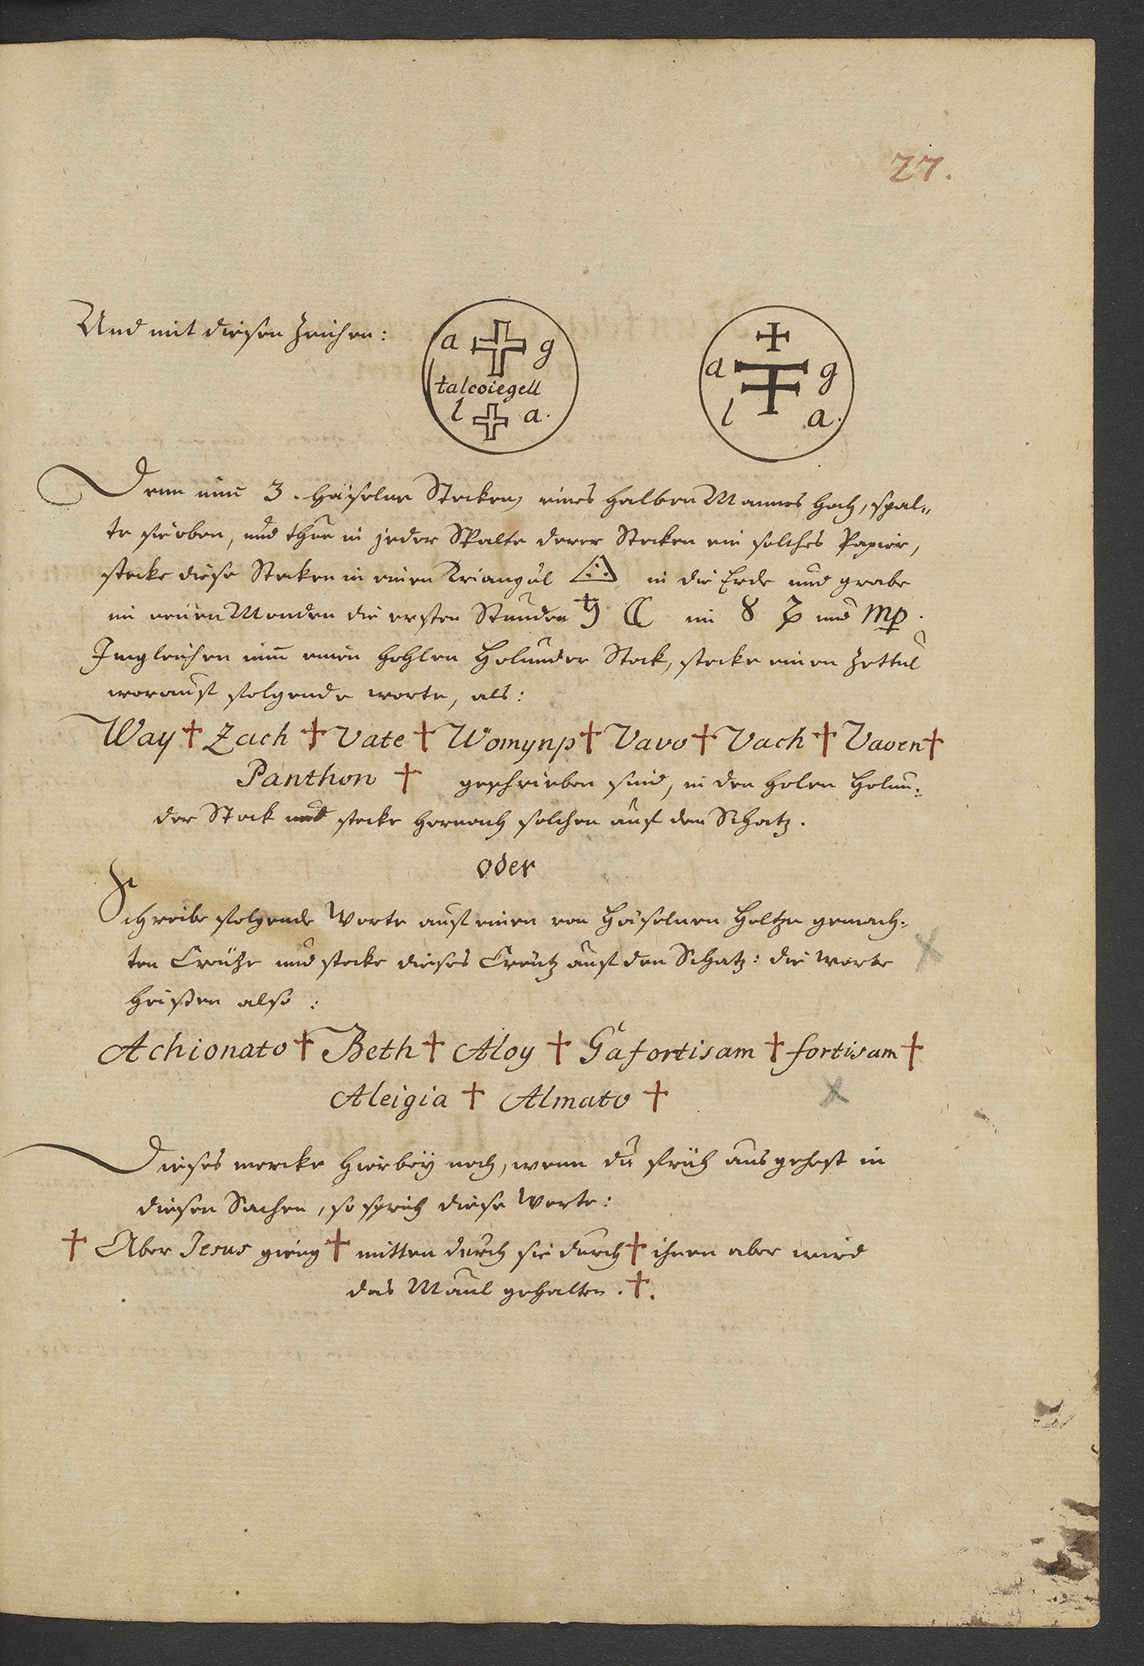 27.
Und mit diesen Zeichen:
a g
talcoiegell
l a.
a g
l a.
Denn nim̄ 3. häselne Stecken, eines halben Mannes hoch, spal-
te sie oben, und thue in jeder Spalte derer Stecken ein solches Papier,
stecke diese Stecken in einen Triangul △ in die Erde und grabe
im neuen Monden die ersten Stunden ♄ ☾ im ♉ und ♍.
Imgleichen nim̄ einen hohlen Holunder Stock, stecke einen Zettul
worauf folgende worte, als:
Way † Zach † Vate † Womynp † Vavo † Vach † Vaven †
Panthon † geschrieben sind, in den holen Holun-
der Stock und stecke hernach solchen auf den Schatz.
oder
Schreibe folgende Worte auf einen von häselnen Holtze gemach-
ten Creutze und stecke dieses Creutz auf den Schatz: die Worte
heißen also:
Achionato † Beth † Aloy † Gafortisam † fortisam †
Aleigia † Almato †
Dieses mercke hierbey noch, wenn du früh aus gehest in
diesen Sachen, so sprich diese Worte:
† Aber Jesus gieng † mitten durch sie durch † ihnen aber wird
das Maul gehalten. †.